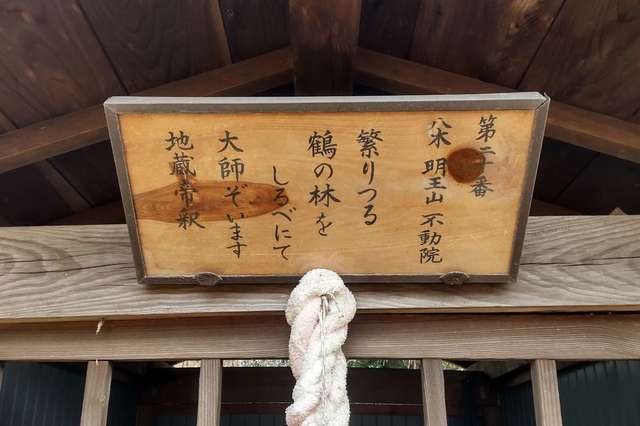 第二番
八木 明王山 不動院
繁りつる
鶴の林を
しるべにて
大師ぞいます
地蔵帝釈